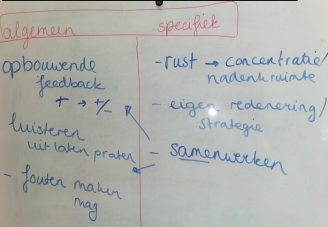 algemeen
opbouwende
feedback
+ → +/-
luisteren
uit laten praten
- fouten maken
mag
specifiek
- rust → concentratie/
nadenkruimte
- eigen redenering/
strategie
- samenwerken